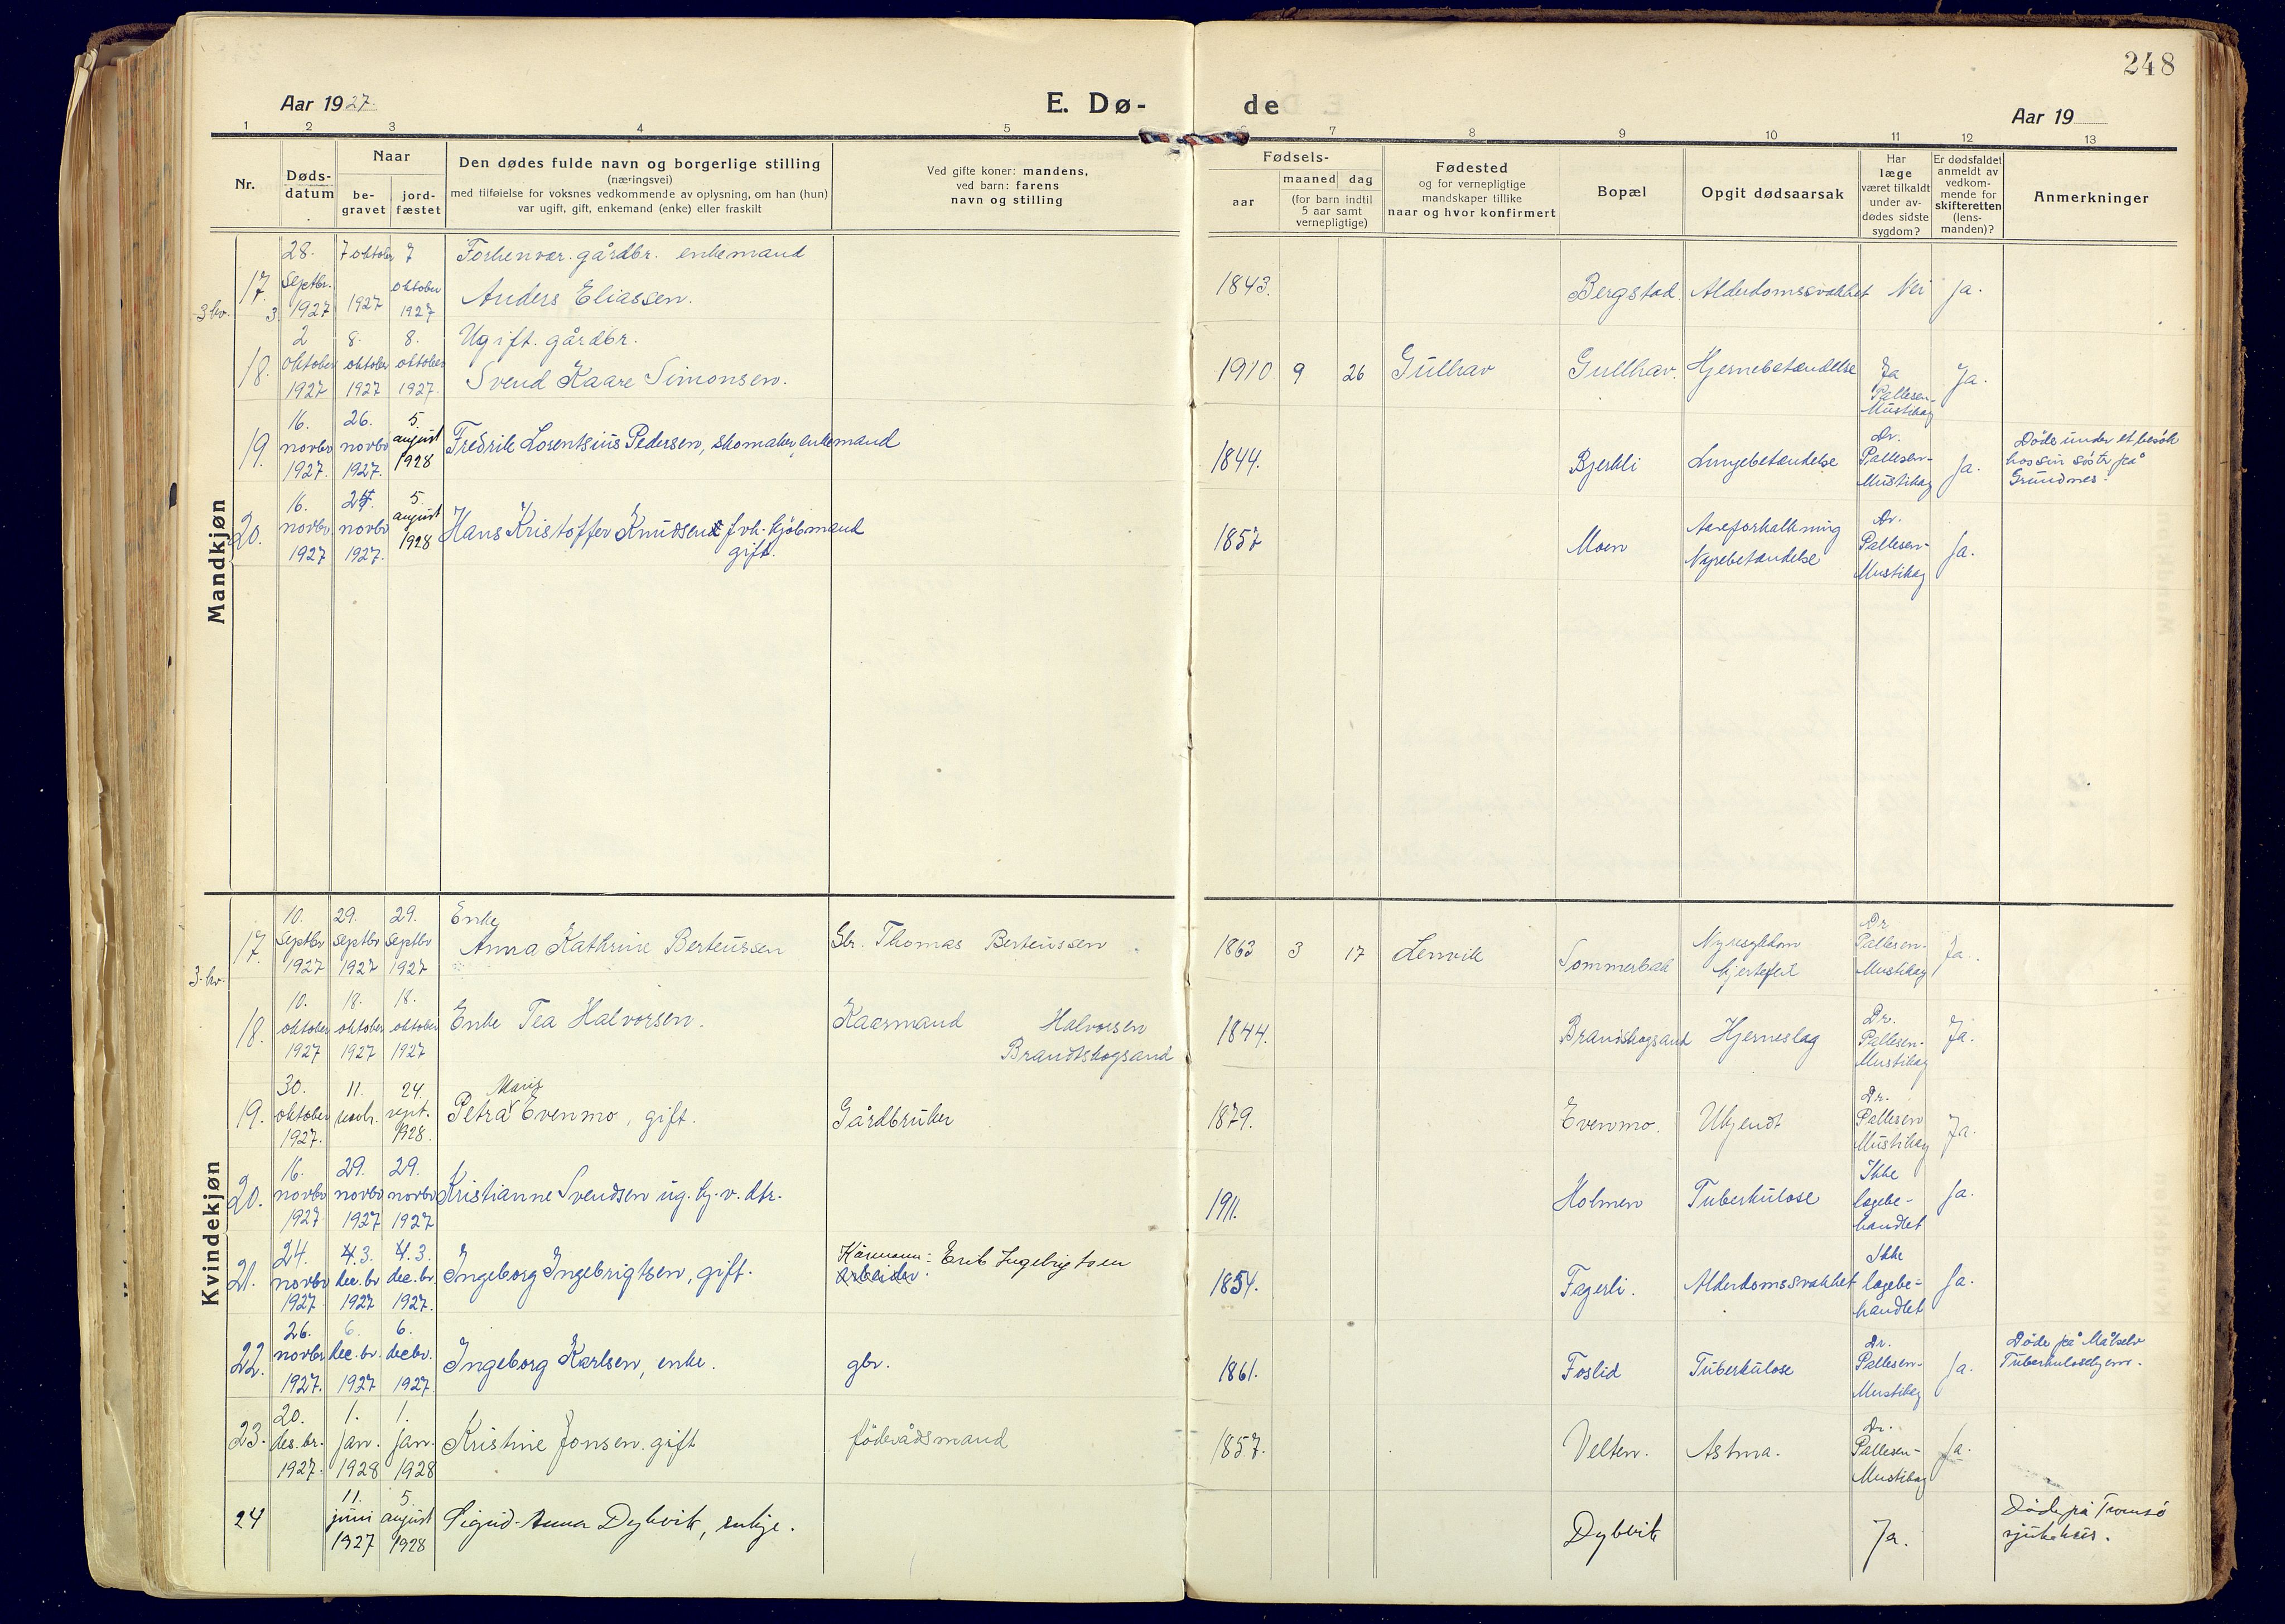 248
Aar 1927.
E. Dø-
de
Aar 19
1 2 3 4 5 6 7 8 9 10 11 12 13
Nr.
Døds-
datum
Naar
be-
gravet
jord-
fæstet
Den dødes fulde navn og borgerlige stilling
(næringsvei)
med tilføielse for voksnes vedkommende av oplysning, om han (hun)
var ugift, gift, enkemand (enke) eller fraskilt
Ved gifte koner: mandens,
ved barn: farens
navn og stilling
Fødsels-
aar
maaned dag
(for barn indtil
5 aar samt
vernepligtige)
Fødested
og for vernepligtige
mandskaper tillike
naar og hvor konfirmert
Bopæl
Opgit dødsaarsak
Har
læge
været tilkaldt
under av-
dødes sidste
sygdom?
Er dødsfaldet
anmeldt av
vedkom-
mende for
skifteretten
(lens-
manden)?
Anmerkninger
Mandkjøn
3 kv.
17. 3.
28. Septbr. 1927
7 oktober 1927
7 oktober 1927
Forhenvær. gårdbr. enkemand
Anders Eliassen.
1843.
Bergstad.
Alderdomssvakhet
Nei
Ja.
18.
2 oktober 1927
8. oktober 1927
8. oktober 1927.
Ugift. gårdbr.
Svend Kaare Simonsen.
1910 9 26
Gullhav
Gullhav.
Hjernebetændelse
Ja
Pallesen-
Mustihag
Ja.
19.
16. novbr 1927.
26. novbr 1927.
5. august 1928
Fredrik Lorentsius Pedersen, skomaker, enkemand
1844.
Bjerkli
Lungebetændelse
Dr.
Pallesen-
Mustihag
Ja.
Døde under et besøk
hos sin søster på
Grundnes.
20.
16. novbr. 1927
novbr 1927.
5. august 1928
Hans Kristoffer Knudsen frh. kjøbmand
gift.
1857
Moen
Aareforkalkning
Nyrebetændelse
Dr.
Pallesen-
Mustihag
Ja.
Kvindekjøn
3. kv.
17.
10. Septbr 1927
29. septbr 1927
29. septbr 1927
Enke
Anna Kathrine Berteussen
Gbr. Thomas Berteussen
1863 3 17
Lenvik
Sommerbak
Nyresykdom
hjertefeil
Dr
Pallesen-
Mustihag
Ja.
18.
10. oktober 1927
18. oktober 1927
18. oktober 1927
Enke Tea Halvorsen.
Kaarmand Halvorsen
Brandtskogsand
1844.
Brandskogsand
Hjerneslag
Dr.
Pallesen-
Mustihag
Ja.
19.
30. oktober 1927.
11. novbr.
24. sept. 1928.
Marie
Petra Evenmo, gift.
Gårdbruker
1879.
Evenmo.
Ukjendt
Dr.
Pallesen
Mustihag
Ja.
20.
16. novbr 1927
29. novbr 1927
29. novbr 1927
Kristianne Svendsen ug. hj. v. dtr.
1911.
Holmen
Tuberkulose
Ikke
lægebe-
handlet
Ja.
21.
24. novbr 1927
3. dec.br 1927
3. dec.br. 1927.
Ingeborg Ingebrigtsen, gift.
Kårmann: Erik Ingebrigtsen
arbeider.
1854.
Fagerli.
Alderdomssvakhet
Ikke
lægebe-
handlet
Ja.
22.
26. novbr 1927.
6. dec.br. 1927
6. decbr. 1927.
Ingeborg Karlsen, enke.
gbr.
1861.
Foslid
Tuberkulose
Dr.
Pallesen-
Mustihag
Ja.
Døde på Målselv
Tuberkulosehjem.
23.
20. des.br. 1927.
1. jan. 1928
1. jan. 1928
Kristine Jonsen. gift
föderådsmand
1857.
Velten.
Astma.
Dr.
Pallesen-
Mustihag
Ja.
24
11. juni 1927
5. august 1928
Sigrid-Anna Dybvik, enkje.
Dybvik
Ja.
Døde på Tromsö
sjukehus.